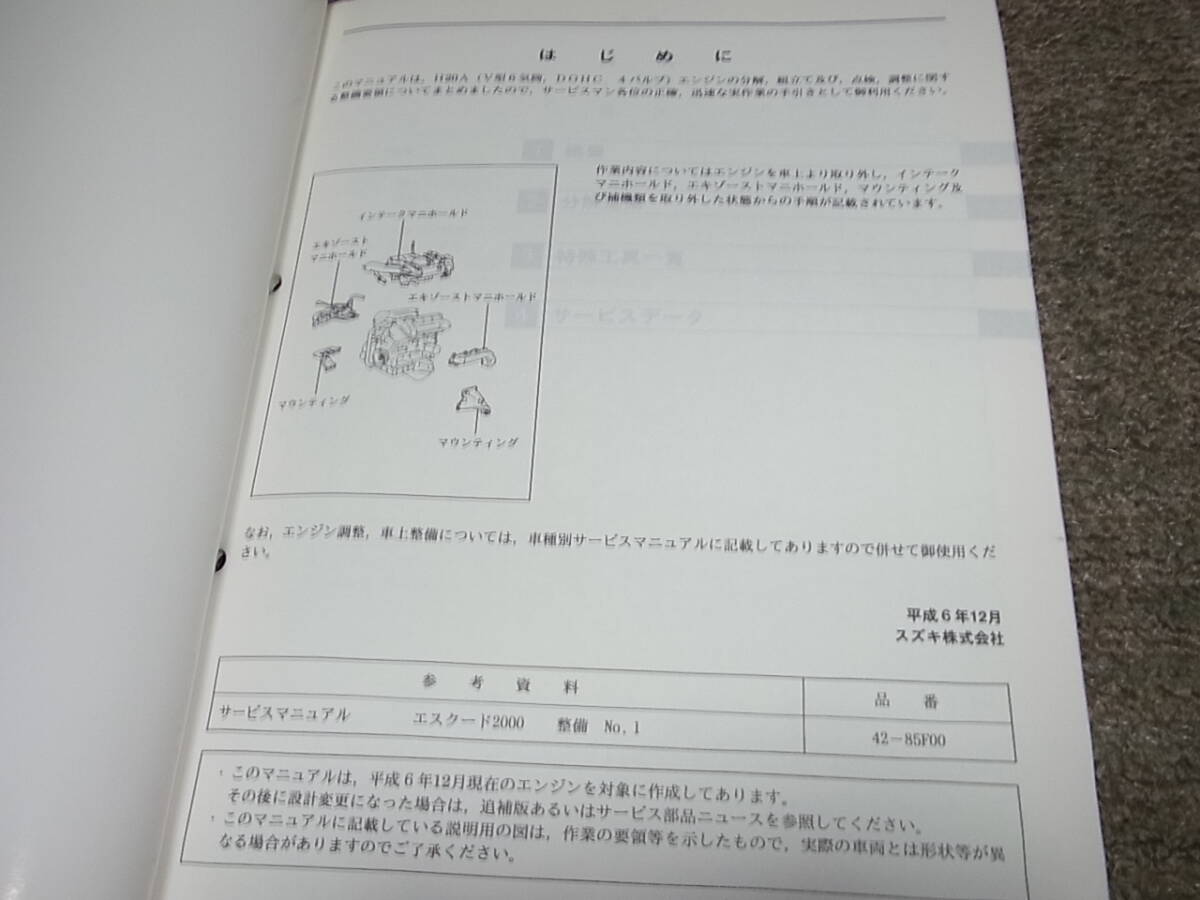 はじめに
このマニュアルは，H20A（V型6気筒，DOHC 4バルブ）エンジンの分解，組立て及び，点検，調整に関す
る整備要領についてまとめましたので，サービスマン各位の正確，迅速な実作業の手引きとして御利用ください。
作業内容についてはエンジンを車上より取り外し，インテーク
マニホールド，エキゾーストマニホールド，マウンティング及
び補機類を取り外した状態からの手順が記載されています。
インテークマニホールド
エキゾースト
マニホールド
エキゾーストマニホールド
マウンティング
マウンティング
特殊工具一覧
サービスデータ
なお，エンジン調整，車上整備については，車種別サービスマニュアルに記載してありますので併せて御使用くだ
さい。
平成6年12月
スズキ株式会社
参考資料 品番
サービスマニュアル エスクード2000 整備 No.1 42－85F00
このマニュアルは，平成6年12月現在のエンジンを対象に作成してあります。
その後に設計変更になった場合は，追補版あるいはサービス部品ニュースを参照してください。
このマニュアルに記載している説明用の図は，作業の要領等を示したもので，実際の車両とは形状等が異
なる場合がありますのでご了承ください。